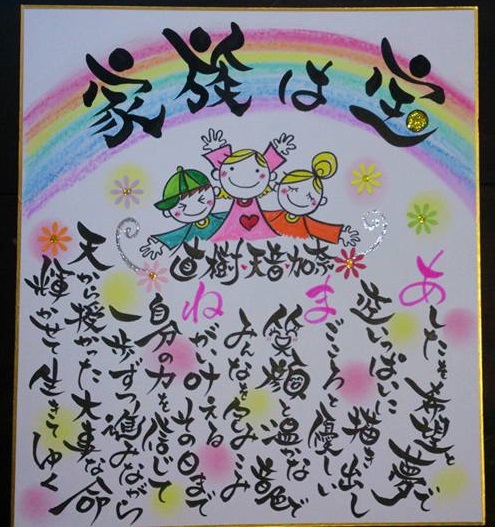 家族は宝
直樹・天音・加奈
あしたを希望と夢で
空いっぱいに描き出し
まごころと優しい
笑顔と温かな音色で
みんなを包みこみ
ねがい叶えるその日まで
自分の力を信じて
一歩ずつ進みながら
天から授かった大事な命
輝かせて生きてゆく